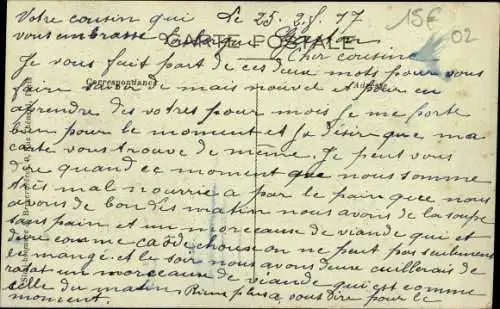 Votre cousin qui Le 25. 2. 17
vous embrasse
15€
02
CARTE POSTALE
Cher cousin
Je vous fait part de ces deux mots pour vous
Correspondance
faire de mais nouvel et pour en
aprendre des votres pour mois je me porte
bien pour le moment et Je désire que ma
carte vous trouve de même. Je peut vous
dire quand ce moment que nous somme
très mal nourrie a par le pain que nous
avons de bon dès matin nous avons de la soupe
sans pain et un morceaux de viande qui et
dure comme on ne peut pas seulement
en mangé et le soir nous avons deux cuillerais de
un morceaux de viande qui est comme
selle du matin Rien plus a vous dire pour le
moment.